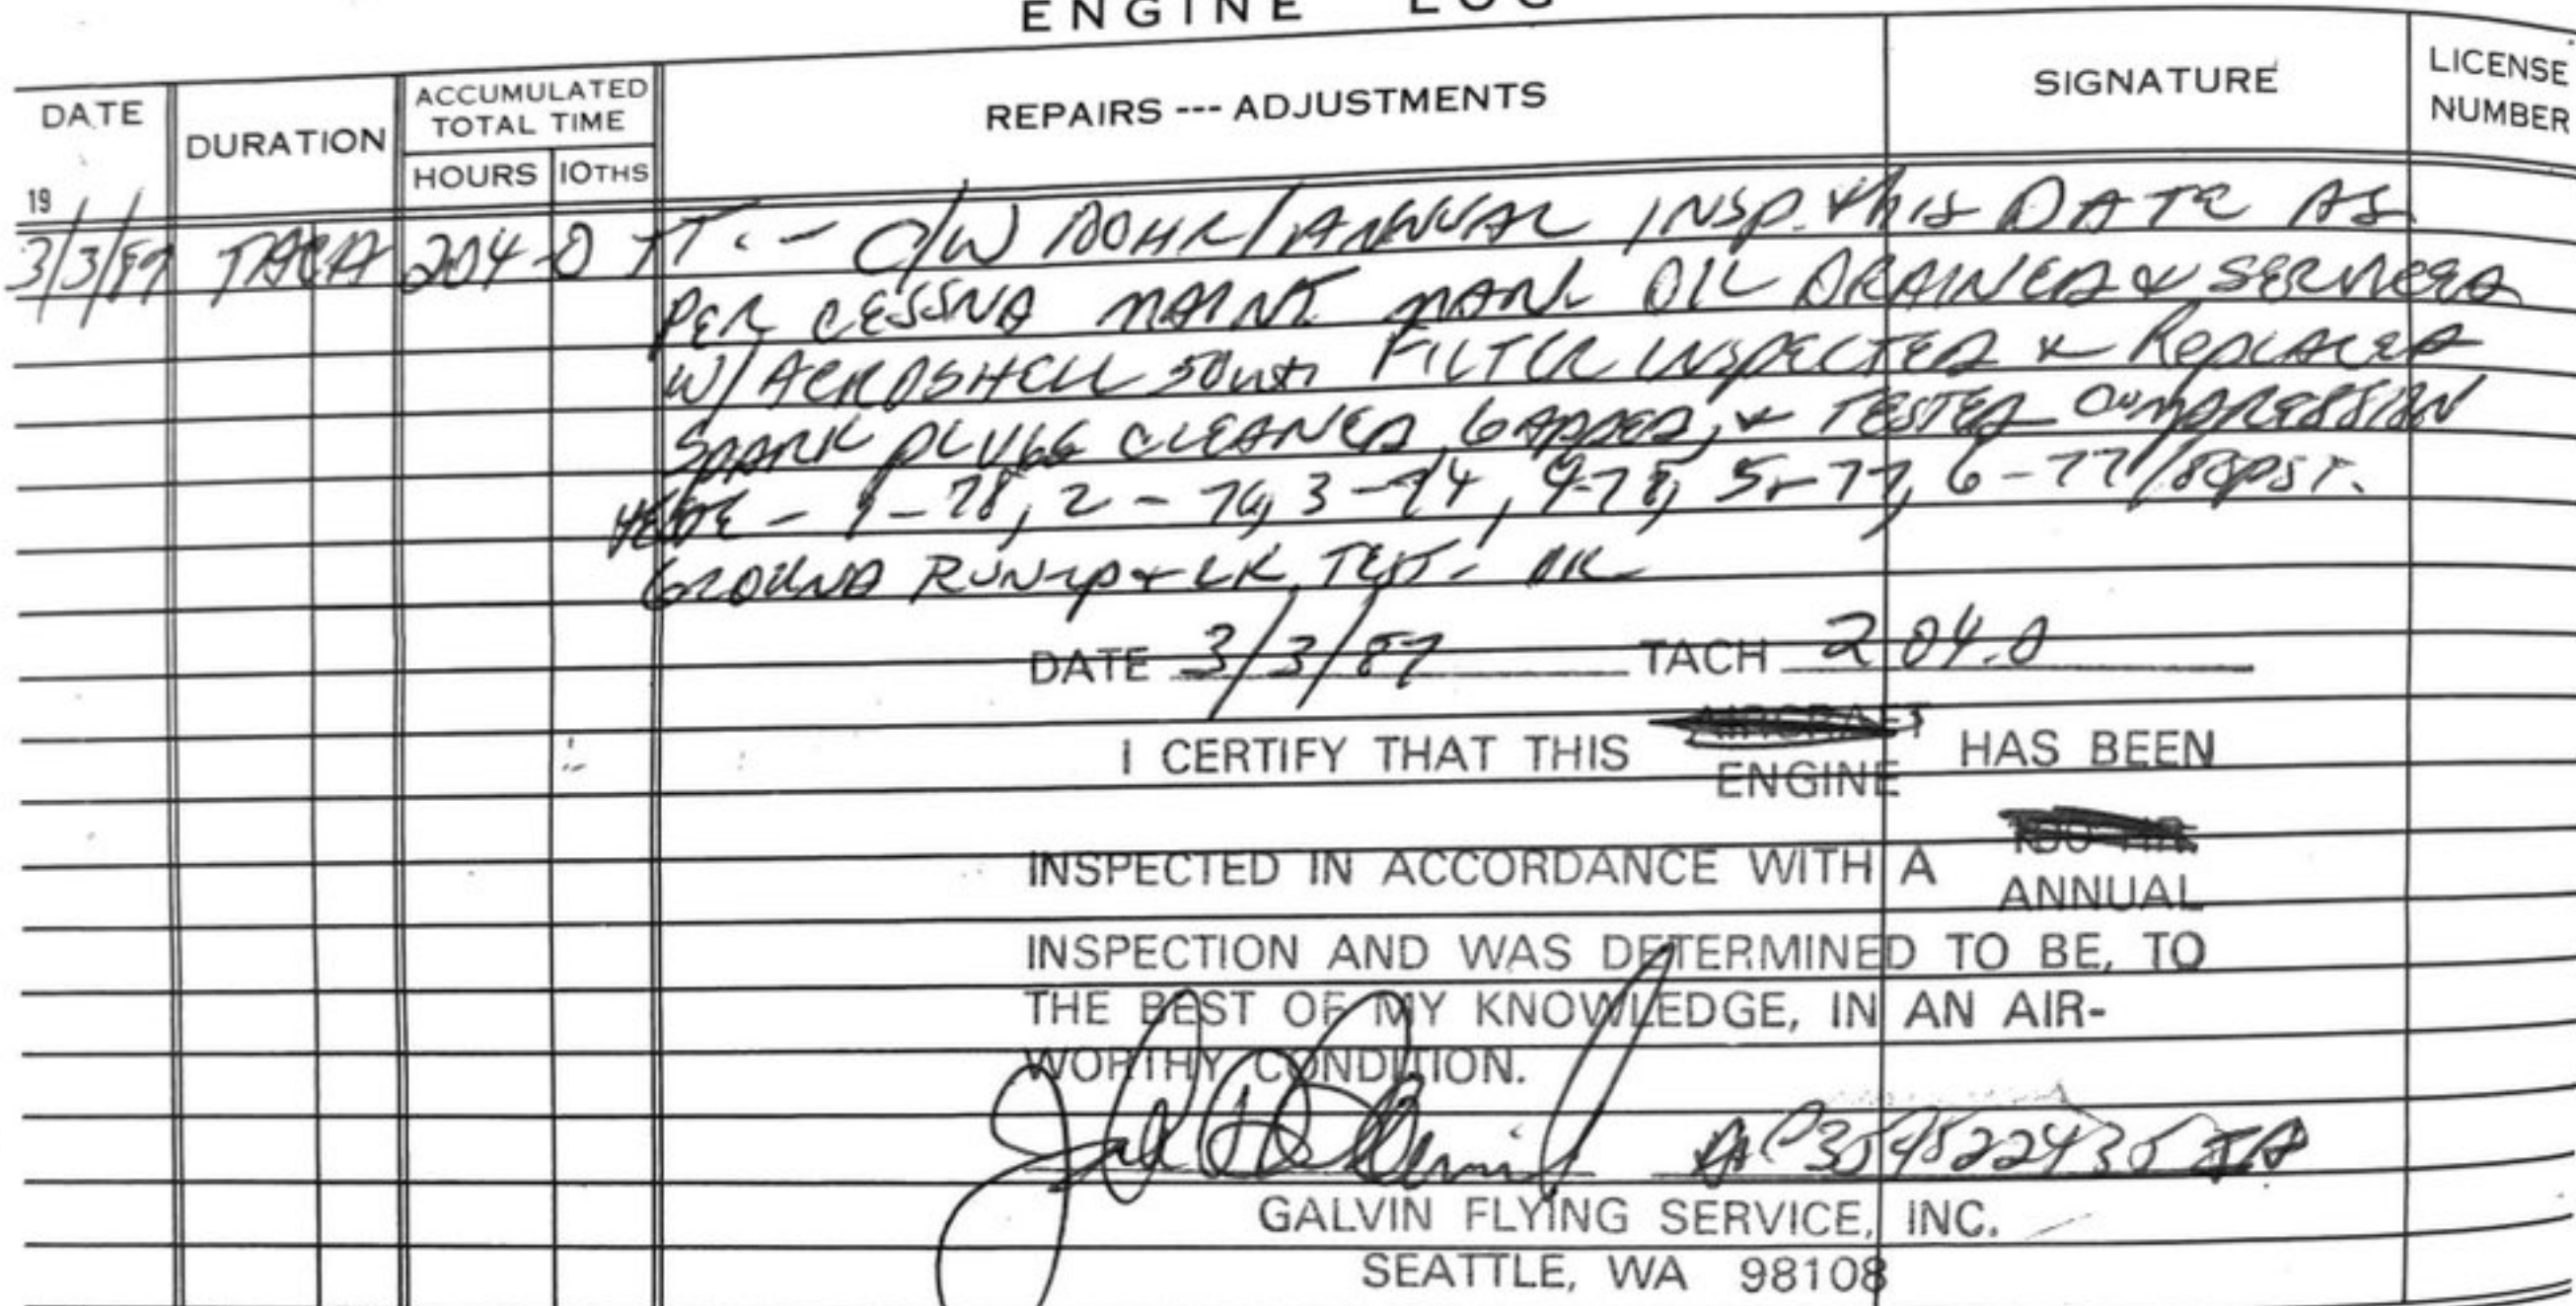 ENGINE LOG
DATE
DURATION
ACCUMULATED TOTAL TIME
HOURS 10THS
REPAIRS --- ADJUSTMENTS
SIGNATURE
LICENSE NUMBER
19
3/3/87 TACH 204.0 TT. - C/W 100HR/ANNUAL INSP. THIS DATE AS
PER CESSNA MAINT. MANL OIL DRAINED & SERVICED
W/ AEROSHELL FILTER INSPECTED & REPLACED
SPARK PLUGS CLEANED, GAPPED, & TESTED COMPRESSION
1-78, 2-76, 3-74, 4-78, 5-77, 6-77/80PSI.
GROUND RUN-UP & LK TEST - OK
DATE 3/3/87 TACH 204.0
I CERTIFY THAT THIS AIRCRAFT HAS BEEN
ENGINE
INSPECTED IN ACCORDANCE WITH A 100 HR.
ANNUAL
INSPECTION AND WAS DETERMINED TO BE, TO
THE BEST OF MY KNOWLEDGE, IN AN AIR-
WORTHY CONDITION.
IA
GALVIN FLYING SERVICE, INC.
SEATTLE, WA 98108